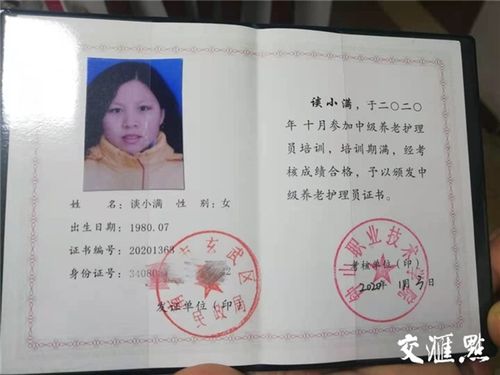 姓 名：谈小满 性 别：女
出生日期：1980.07
证书编号：20201363
身份证号：34080
发证单位（印）
谈小满，于二〇二〇
年十月参加中级养老护理
员培训，培训期满，经考
核成绩合格，予以颁发中
级养老护理员证书。
职业技术
考核单位（印）
2020年11月3日
交汇点